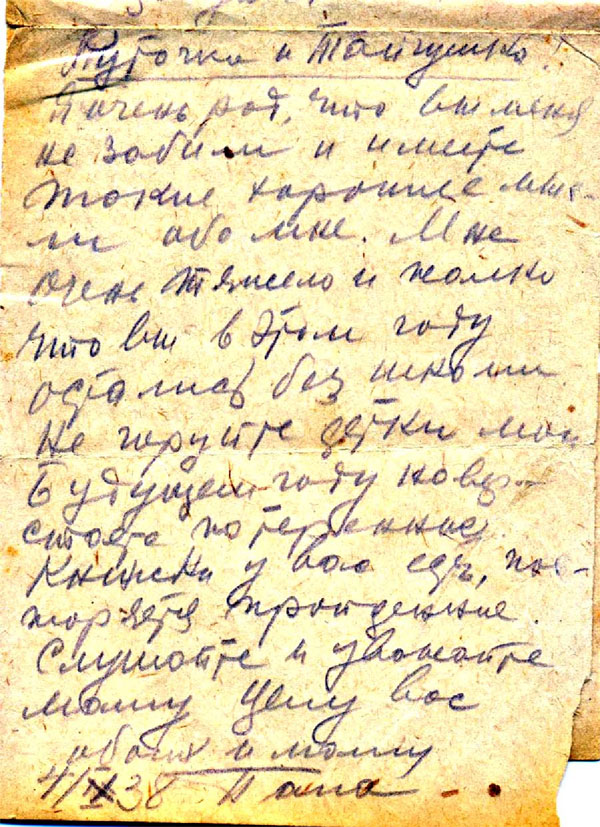 Туточка и Таичушка!
Я очень рад, что вы меня
не забыли и имеете
такие хорошие мыс-
ли обо мне. Мне
очень тяжело и жалко
что вы в этом году
остались без школы
не горуйте детки мои
Будущем году навер-
стаете потерянное.
Книжки у вас едь, пов-
торяйте пройденное.
Слушайте и уважайте
маму Целу вас
обоих и маму
4/X 38 Папа